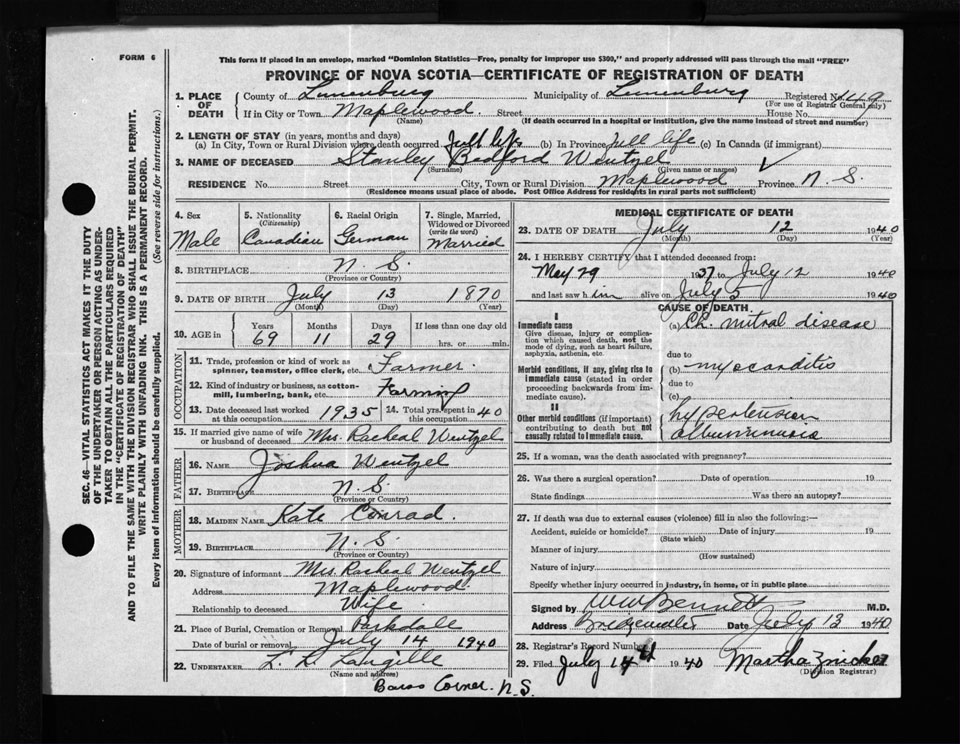 FORM 6
This form if placed in an envelope, marked "Dominion Statistics—Free, penalty for improper use $300," and properly addressed will pass through the mail "FREE"
PROVINCE OF NOVA SCOTIA—CERTIFICATE OF REGISTRATION OF DEATH
1. PLACE OF DEATH
County of Lunenburg Municipality of Lunenburg Registered No. 149
(For use of Registrar General only)
If in City or Town Maplewood Street House No.
(Name) (If death occurred in a hospital or institution, give the name instead of street and number)
2. LENGTH OF STAY (in years, months and days)
(a) In City, Town or Rural Division where death occurred Full life (b) In Province Full life (c) In Canada (if immigrant)
3. NAME OF DECEASED Stanley Bedford Wentzel
(Surname) (Given name or names)
RESIDENCE No. Street City, Town or Rural Division Maplewood Province N. S.
(Residence means usual place of abode. Post Office Address for residents in rural parts not sufficient)
4. Sex
Male
5. Nationality
(Citizenship)
Canadian
6. Racial Origin
German
7. Single, Married, Widowed or Divorced
(write the word)
Married
8. BIRTHPLACE N. S.
(Province or Country)
9. DATE OF BIRTH July 13 1870
(Month) (Day) (Year)
10. AGE in Years Months Days If less than one day old
69 11 29 hrs. or min.
OCCUPATION
11. Trade, profession or kind of work as spinner, teamster, office clerk, etc. Farmer
12. Kind of industry or business, as cotton-mill, lumbering, bank, etc. Farming
13. Date deceased last worked at this occupation 1935 14. Total yrs. spent in this occupation 40
15. If married give name of wife or husband of deceased Mrs. Racheal Wentzel
FATHER
16. NAME Joshua Wentzel
17. BIRTHPLACE N. S.
(Province or Country)
MOTHER
18. MAIDEN NAME Kate Conrad.
19. BIRTHPLACE N. S.
(Province or Country)
20. Signature of informant Mrs. Racheal Wentzel
Address Maplewood
Relationship to deceased Wife
21. Place of Burial, Cremation or Removal Parkdale
Date of burial or removal July 14 1940
22. UNDERTAKER L. L. Langille
(Name and address)
Barss Corner. N.S.
MEDICAL CERTIFICATE OF DEATH
23. DATE OF DEATH July 12 1940
(Month) (Day) (Year)
24. I HEREBY CERTIFY that I attended deceased from:
May 29 1937 to July 12 1940
and last saw him alive on July 5 1940
CAUSE OF DEATH
I
Immediate cause
Give disease, injury or complication which caused death, not the mode of dying, such as heart failure, asphyxia, asthenia, etc
(a) Ch. mitral disease
due to
Morbid conditions, if any, giving rise to immediate cause (stated in order proceeding backwards from immediate cause).
(b) myocarditis
due to
(c)
II
Other morbid conditions (if important) contributing to death but not causally related to immediate cause.
hypertension
albuminuria
25. If a woman, was the death associated with pregnancy?
26. Was there a surgical operation? Date of operation 19
State findings Was there an autopsy?
27. If death was due to external causes (violence) fill in also the following:—
Accident, suicide or homicide? Date of injury 19
(State which)
Manner of injury
(How sustained)
Nature of injury
Specify whether injury occurred in industry, in home, or in public place
Signed by W W Bennett M.D.
Address Bridgewater Date July 13 1940
28. Registrar's Record Number
29. Filed July 14th 1940 Martha Zwicker
(Division Registrar)
SEC. 46—VITAL STATISTICS ACT MAKES IT THE DUTY
OF THE UNDERTAKER OR PERSON ACTING AS UNDER-
TAKER TO OBTAIN ALL THE PARTICULARS REQUIRED
IN THE "CERTIFICATE OF REGISTRATION OF DEATH"
AND TO FILE THE SAME WITH THE DIVISION REGISTRAR WHO SHALL ISSUE THE BURIAL PERMIT.
WRITE PLAINLY WITH UNFADING INK. THIS IS A PERMANENT RECORD.
Every item of information should be carefully supplied. (See reverse side for instructions.)